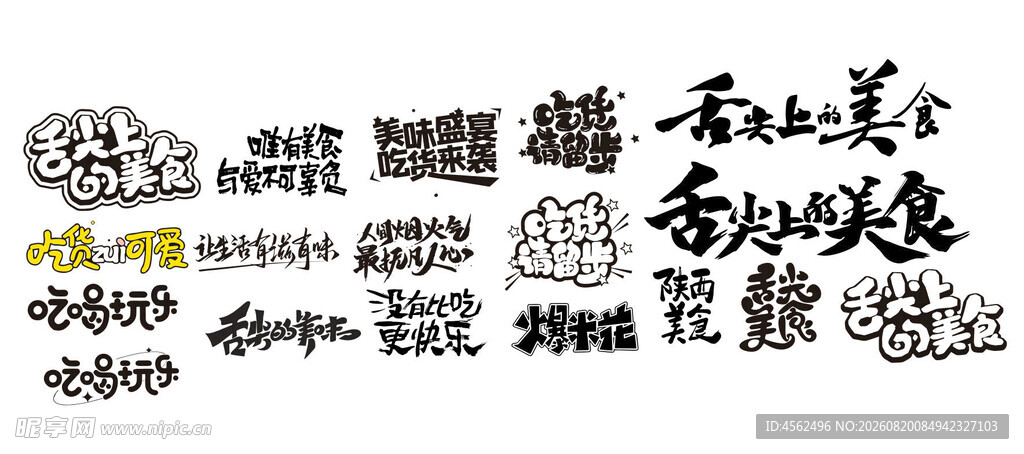 舌尖上
的美食
唯有美食
与爱不可辜负
美味盛宴
吃货来袭
吃货
请留步
舌尖上的美食
舌尖上的美食
吃货zui可爱
让生活有滋有味
人间烟火气
最抚凡人心
吃货
请留步
吃喝玩乐
舌尖的美味
没有比吃
更快乐
爆米花
陕西
美食
舌尖
美食
舌尖上
的美食
吃喝玩乐
昵享网 www.nipic.cn
ID:4562496 NO:20260820084942327103